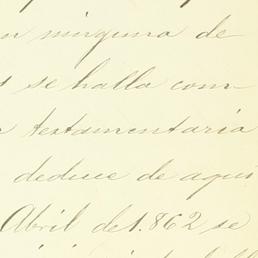 ninguna de
se halla com-
testamentaria
deduce de aqui
Abril de 1.862 se